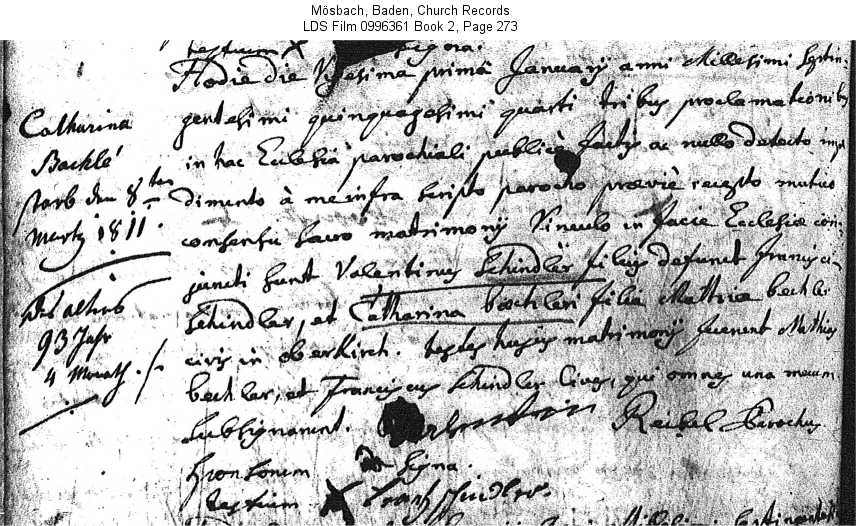 Mösbach, Baden, Church Records
LDS Film 0996361 Book 2, Page 273
testium X signa.
Hodie die Vigesima prima Januarij anni Millesimi Septin-
gentesimi quinquagesimi quarti tribus proclamationibus
in hac Ecclesia parochiali publicè factis ac nullo detecto impe
dimento à me infra scripto parocho praeviè recepto mutuo
consensu sacro matrimonij Vinculo in facie Ecclesiae con-
juncti sunt Valentinus Schindler filius defunct Francisci
Schindler, et Catharina bechleri filia Mathiae bechler
civis in oberkirch. testes hujus matrimonij fuerunt Mathias
bechler, et Franciscus Schindler Cives, qui omnes una mecum
subsignarunt. Reibel Parochus
signa.
testium X Frantz schindler.
Catharina
Bächlé
starb den 8ten
Mertz 1811.
des alters
93 Jahr
4 Monath.